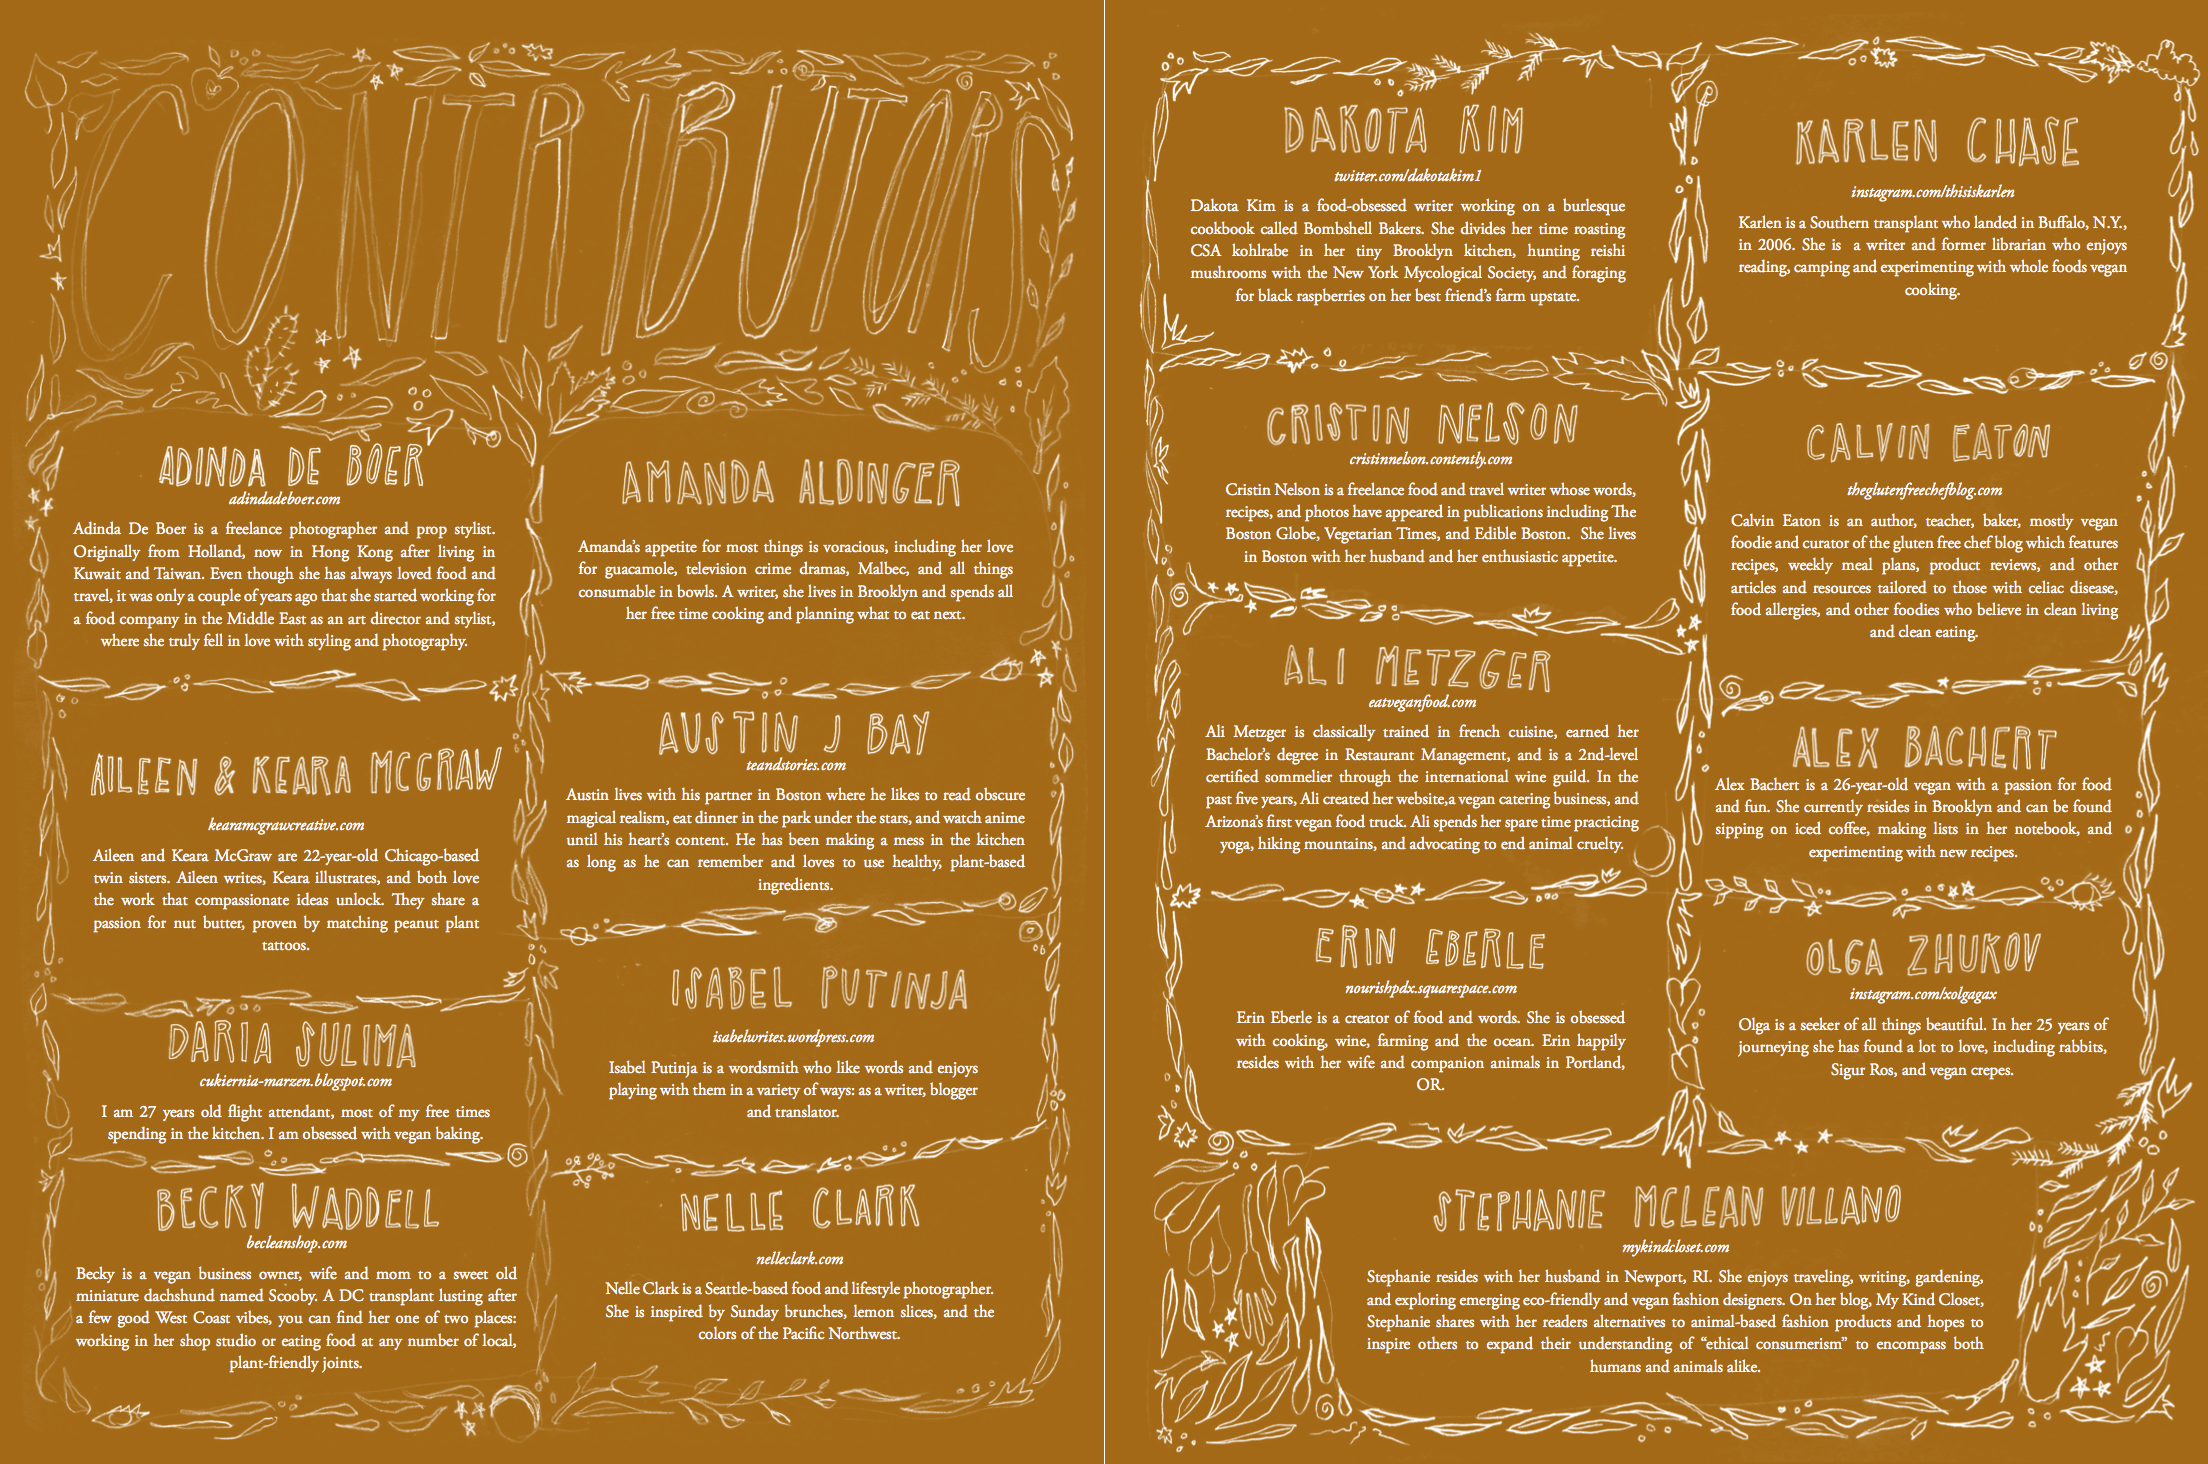 CONTRIBUTORS
ADINDA DE BOER
adindadeboer.com
Adinda De Boer is a freelance photographer and prop stylist.
Originally from Holland, now in Hong Kong after living in
Kuwait and Taiwan. Even though she has always loved food and
travel, it was only a couple of years ago that she started working for
a food company in the Middle East as an art director and stylist,
where she truly fell in love with styling and photography.
AILEEN & KEARA MCGRAW
kearamcgrawcreative.com
Aileen and Keara McGraw are 22-year-old Chicago-based
twin sisters. Aileen writes, Keara illustrates, and both love
the work that compassionate ideas unlock. They share a
passion for nut butter, proven by matching peanut plant
tattoos.
DARIA SULIMA
cukiernia-marzen.blogspot.com
I am 27 years old flight attendant, most of my free times
spending in the kitchen. I am obsessed with vegan baking.
BECKY WADDELL
becleanshop.com
Becky is a vegan business owner, wife and mom to a sweet old
miniature dachshund named Scooby. A DC transplant lusting after
a few good West Coast vibes, you can find her one of two places:
working in her shop studio or eating food at any number of local,
plant-friendly joints.
AMANDA ALDINGER
Amanda's appetite for most things is voracious, including her love
for guacamole, television crime dramas, Malbec, and all things
consumable in bowls. A writer, she lives in Brooklyn and spends all
her free time cooking and planning what to eat next.
AUSTIN J BAY
teandstories.com
Austin lives with his partner in Boston where he likes to read obscure
magical realism, eat dinner in the park under the stars, and watch anime
until his heart's content. He has been making a mess in the kitchen
as long as he can remember and loves to use healthy, plant-based
ingredients.
ISABEL PUTINJA
isabelwrites.wordpress.com
Isabel Putinja is a wordsmith who like words and enjoys
playing with them in a variety of ways: as a writer, blogger
and translator.
NELLE CLARK
nelleclark.com
Nelle Clark is a Seattle-based food and lifestyle photographer.
She is inspired by Sunday brunches, lemon slices, and the
colors of the Pacific Northwest.
DAKOTA KIM
twitter.com/dakotakim1
Dakota Kim is a food-obsessed writer working on a burlesque
cookbook called Bombshell Bakers. She divides her time roasting
CSA kohlrabe in her tiny Brooklyn kitchen, hunting reishi
mushrooms with the New York Mycological Society, and foraging
for black raspberries on her best friend's farm upstate.
CRISTIN NELSON
cristinnelson.contently.com
Cristin Nelson is a freelance food and travel writer whose words,
recipes, and photos have appeared in publications including The
Boston Globe, Vegetarian Times, and Edible Boston. She lives
in Boston with her husband and her enthusiastic appetite.
ALI METZGER
eatveganfood.com
Ali Metzger is classically trained in french cuisine, earned her
Bachelor's degree in Restaurant Management, and is a 2nd-level
certified sommelier through the international wine guild. In the
past five years, Ali created her website,a vegan catering business, and
Arizona's first vegan food truck. Ali spends her spare time practicing
yoga, hiking mountains, and advocating to end animal cruelty.
ERIN EBERLE
nourishpdx.squarespace.com
Erin Eberle is a creator of food and words. She is obsessed
with cooking, wine, farming and the ocean. Erin happily
resides with her wife and companion animals in Portland,
OR.
KARLEN CHASE
instagram.com/thisiskarlen
Karlen is a Southern transplant who landed in Buffalo, N.Y.,
in 2006. She is a writer and former librarian who enjoys
reading, camping and experimenting with whole foods vegan
cooking.
CALVIN EATON
theglutenfreechefblog.com
Calvin Eaton is an author, teacher, baker, mostly vegan
foodie and curator of the gluten free chef blog which features
recipes, weekly meal plans, product reviews, and other
articles and resources tailored to those with celiac disease,
food allergies, and other foodies who believe in clean living
and clean eating.
ALEX BACHERT
Alex Bachert is a 26-year-old vegan with a passion for food
and fun. She currently resides in Brooklyn and can be found
sipping on iced coffee, making lists in her notebook, and
experimenting with new recipes.
OLGA ZHUKOV
instagram.com/xolgagax
Olga is a seeker of all things beautiful. In her 25 years of
journeying she has found a lot to love, including rabbits,
Sigur Ros, and vegan crepes.
STEPHANIE MCLEAN VILLANO
mykindcloset.com
Stephanie resides with her husband in Newport, RI. She enjoys traveling, writing, gardening,
and exploring emerging eco-friendly and vegan fashion designers. On her blog, My Kind Closet,
Stephanie shares with her readers alternatives to animal-based fashion products and hopes to
inspire others to expand their understanding of “ethical consumerism” to encompass both
humans and animals alike.